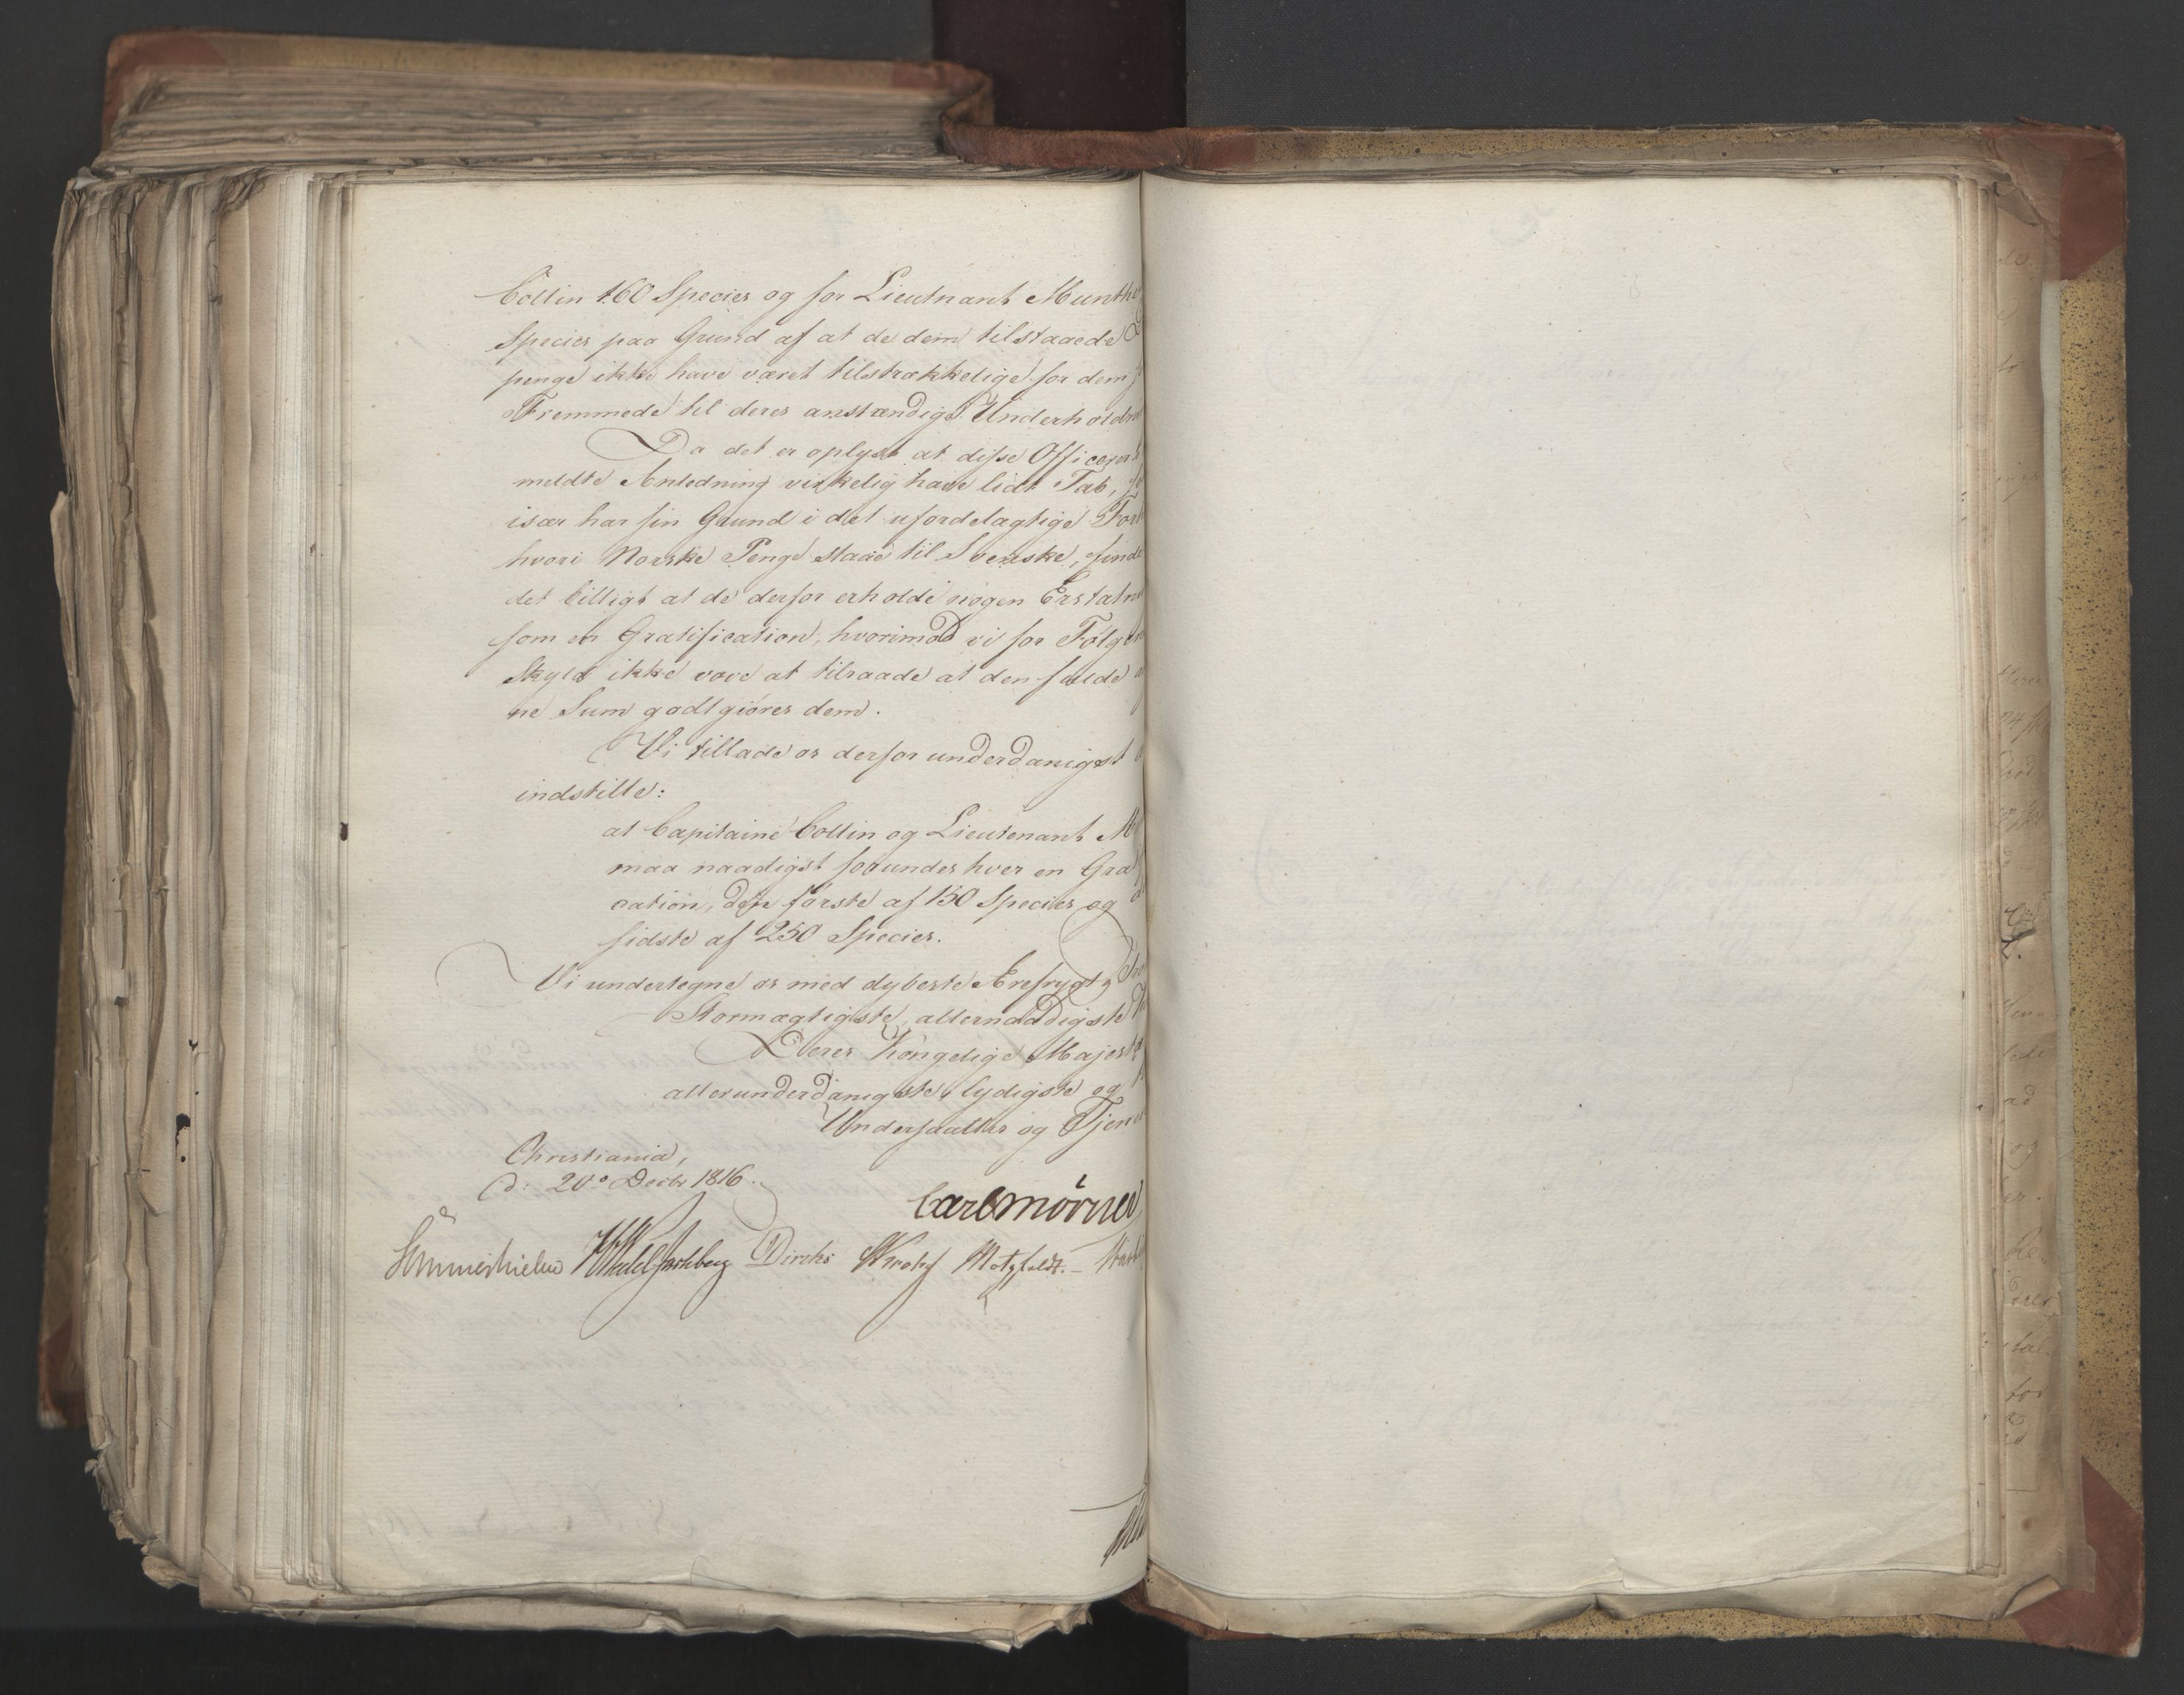 Collin 160 Species og for Lieutnant Munthe
Species paa Grund af at de dem tilstaaede
penge ikke have været tilstrækkelige for dem
Fremmede til deres anstændige Underholdn
Da det er oplyst at disse Officerer
meldte Anledning virkelig have lidt Tab,
især har sin Grund i det ufordelagtige For
hvori Norske Penge staae til Svenske, finde
det billigt at de derfor erholde nogen Erstatn
som en Gratification, hvorimod vi for Følge
Skyld ikke vove at tilraade at den fulde
ne Sum godtgiøres dem.
Vi tillade os derfor underdanigst
indstille:
at Capitaine Collin og Lieutenant M
maa naadigst forundes hver en Gra
cation, den første af 150 Species og
sidste af 250 Species.
Vi undertegne os med dybeste Ærefrygt,
Stormægtigste, allernaadigste
Deres Kongelige Majest
allerunderdanigste, lydigste og
Undersaatter og Tjene
Christiania,
d: 20de Decbr 1816.
Carl Mörner
Sommerhielm Wedel Jarlsberg Diriks Krohg Motzfeldt.